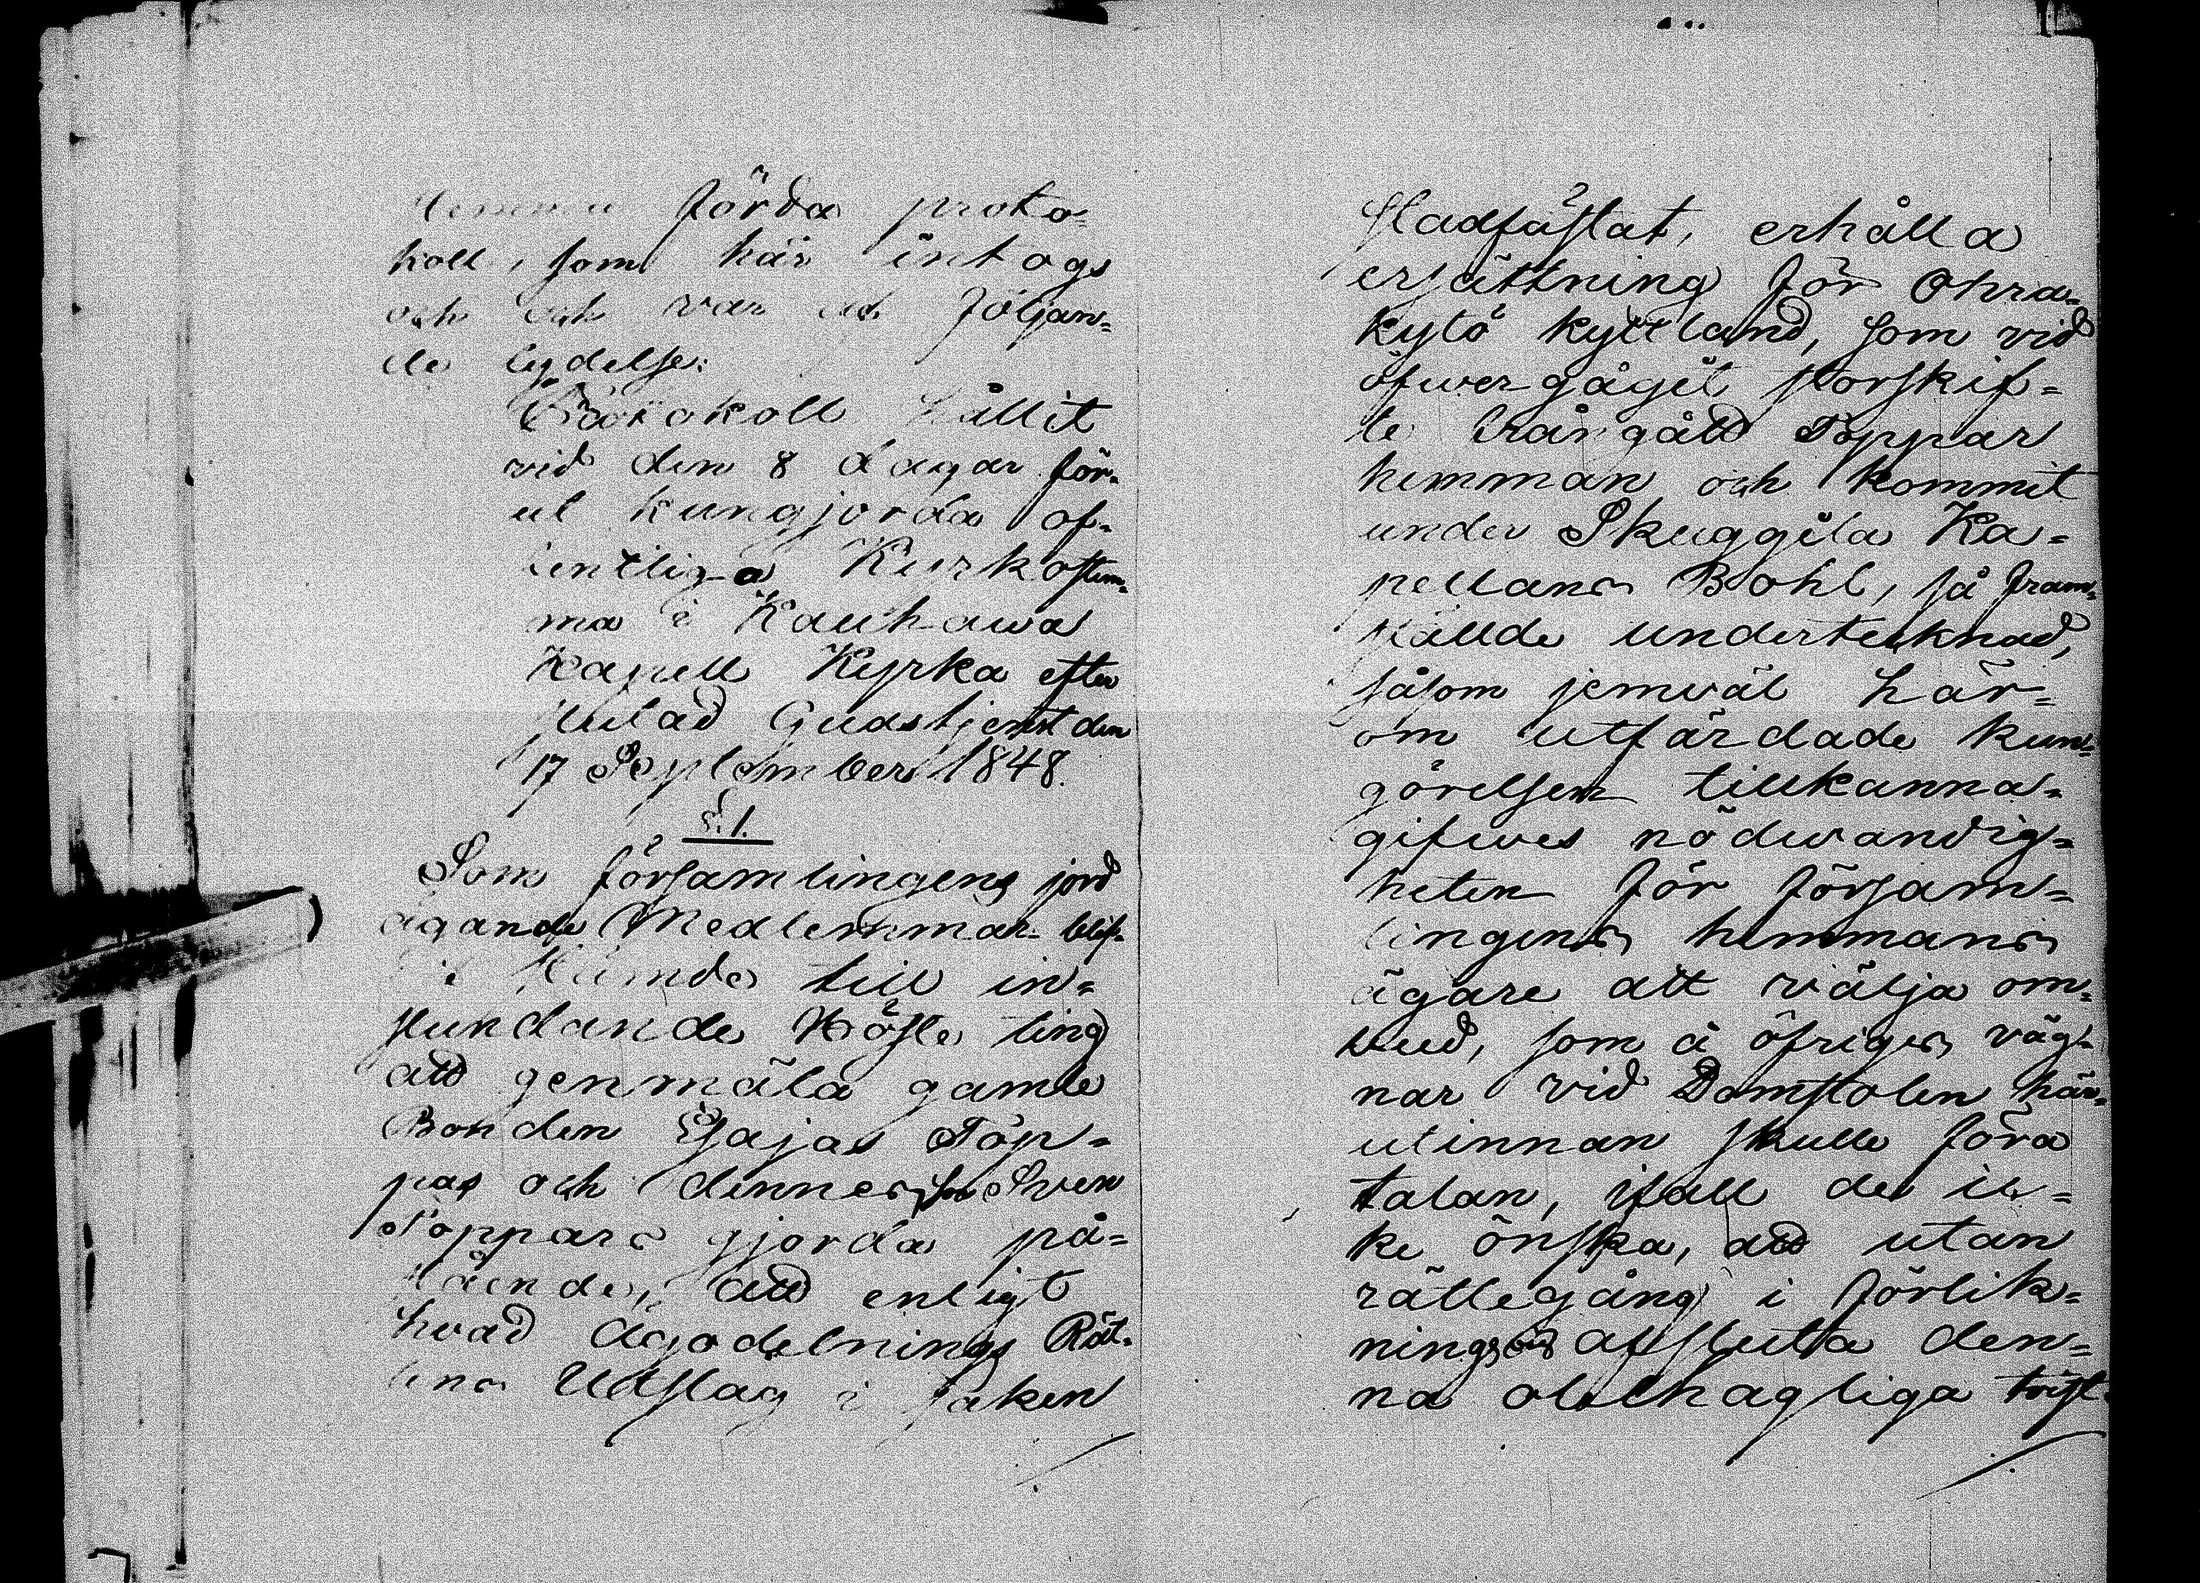 förda proto-
koll, som här intogs
och och var af följan-
de lydelse:
Protokoll hållit
vid den 8 dagar för-
ut kungjorda of-
fentliga Kyrkostäm-
ma i Kauhawa
Kapell Kyrka efter
slutad Gudstjenst den
17 September 1848.
§. 1.
Som församlingens jord
ägande Medlemmar blif-
vit stämde till in-
stundande Höste ting
att genmäla gamle
Bonden Esajas Töp-
pas och dennes son Sven
Töppars gjorda på-
stående, att enligt
hvad Ägodelnings Rät-
tens Utslag i saken
stadfästat, erhålla
ersättning för Ohra-
kytö kyttland, som vid
öfwergågit storskif-
te frångått Töppar
hemman och kommit
under Skuggila Ka-
pellans Bohl, så fram-
stälde undertecknad,
såsom jemväl här-
om utfärdade kun-
görelsen tillkanna-
gifwes nödwandig-
heten för försam-
lingens hemmans
ägare att välja om-
bud, som å öfriges väg-
nar vid Domstolen här-
utinnan skulle föra
talan, ifall de ic-
ke önska, att utan
rättegång i förlik-
nings afsluta den-
na obehagliga tvist